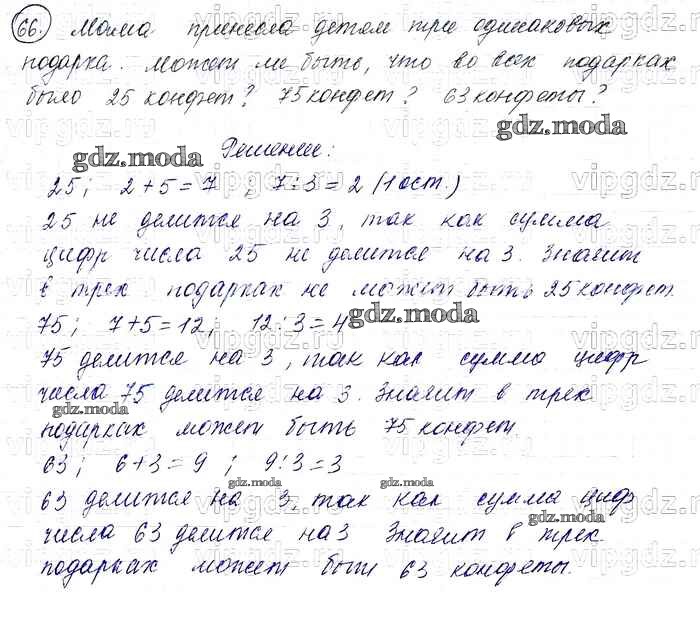 66. Мама принесла детям три одинаковых
подарка. Может ли быть, что во всех подарках
было 25 конфет? 75 конфет? 63 конфеты?
Решение:
25; 2+5=7 ; 7:3=2 (1 ост.)
25 не делится на 3, так как сумма
цифр числа 25 не делится на 3. Значит
в трех подарках не может быть 25 конфет.
75; 7+5=12; 12:3=4
75 делится на 3, так как сумма цифр
числа 75 делится на 3. Значит в трех
подарках может быть 75 конфет.
63; 6+3=9 ; 9:3=3
63 делится на 3, так как сумма цифр
числа 63 делится на 3 Значит в трех
подарках может быть 63 конфеты.
gdz.moda
gdz.moda
gdz.moda
gdz.moda
gdz.moda
vipgdz.ru